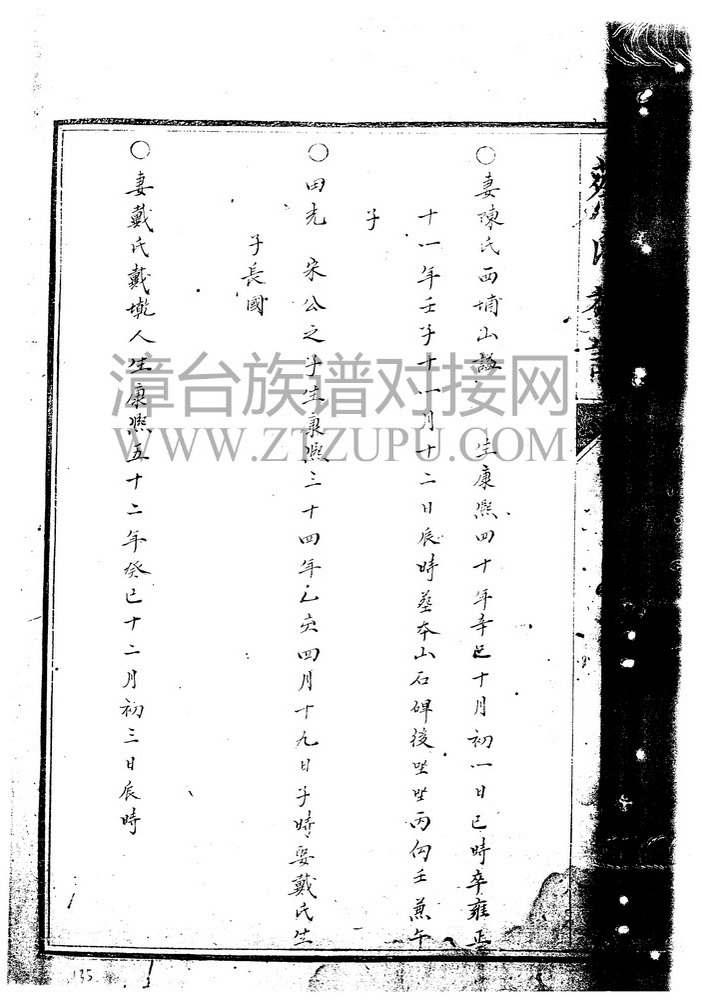 蔡氏族譜
○妻陳氏西埔山謚 生康熙四十年辛巳十月初一日巳時卒雍正
十一年壬子十一月十二日辰時葬本山石碑後坐坐丙向壬兼午
子
○田先 宋公之子生康熙三十四年乙亥四月十九日子時娶戴氏生
子長國
○妻戴氏戴墘人生康熙五十二年癸巳十二月初三日辰時
漳台族谱对接网
WWW.ZTZUPU.COM
135